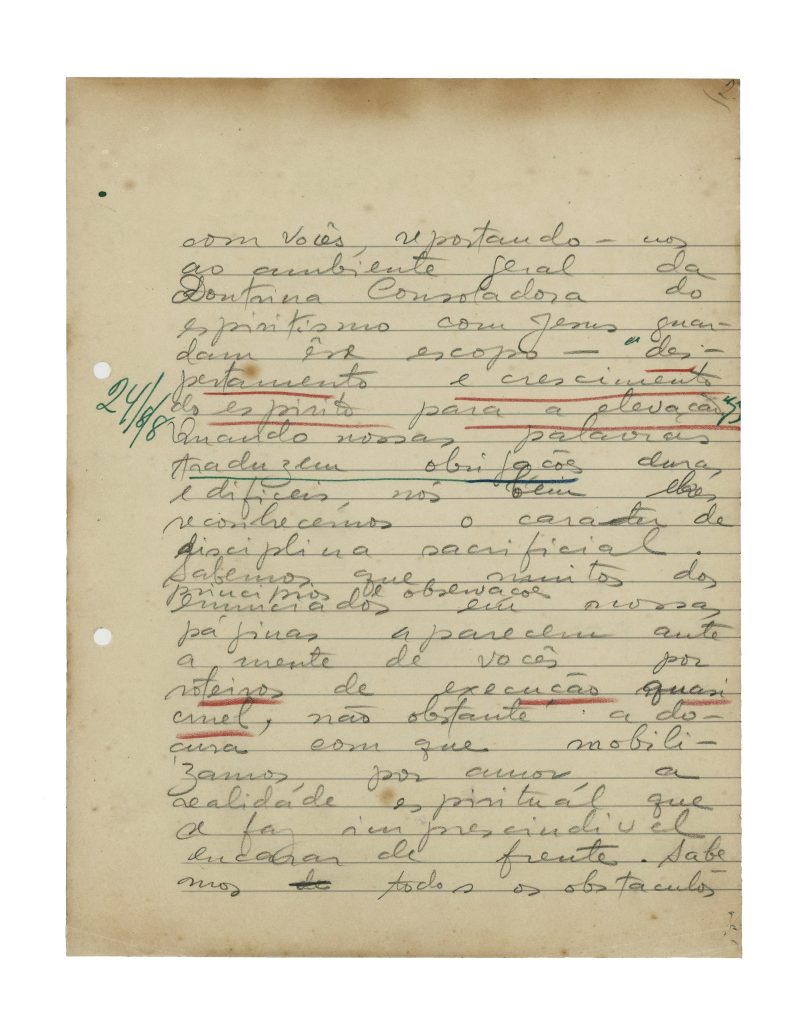 (2
com vocês, reportando-nos
ao ambiente geral da
Doutrina Consoladora do
espiritismo com Jesus guar-
dam êsse escopo — "des-
pertamento e crescimento
do espirito para a elevação".
24/8/8
Quando nossas palavras
traduzem obrigações duras
e dificeis, nós bem
reconhecemos o carater de
disciplina sacrificial.
Sabemos que muitos dos
principios e observações
enunciados em nossas
páginas aparecem ante
a mente de vocês por
roteiros de execução quasi
cruel, não obstante a do-
çura com que mobili-
zamos, por amor a
realidade espirituál que
se faz imprescindivel
encarar de frente. Sabe
mos de todos os obstaculos